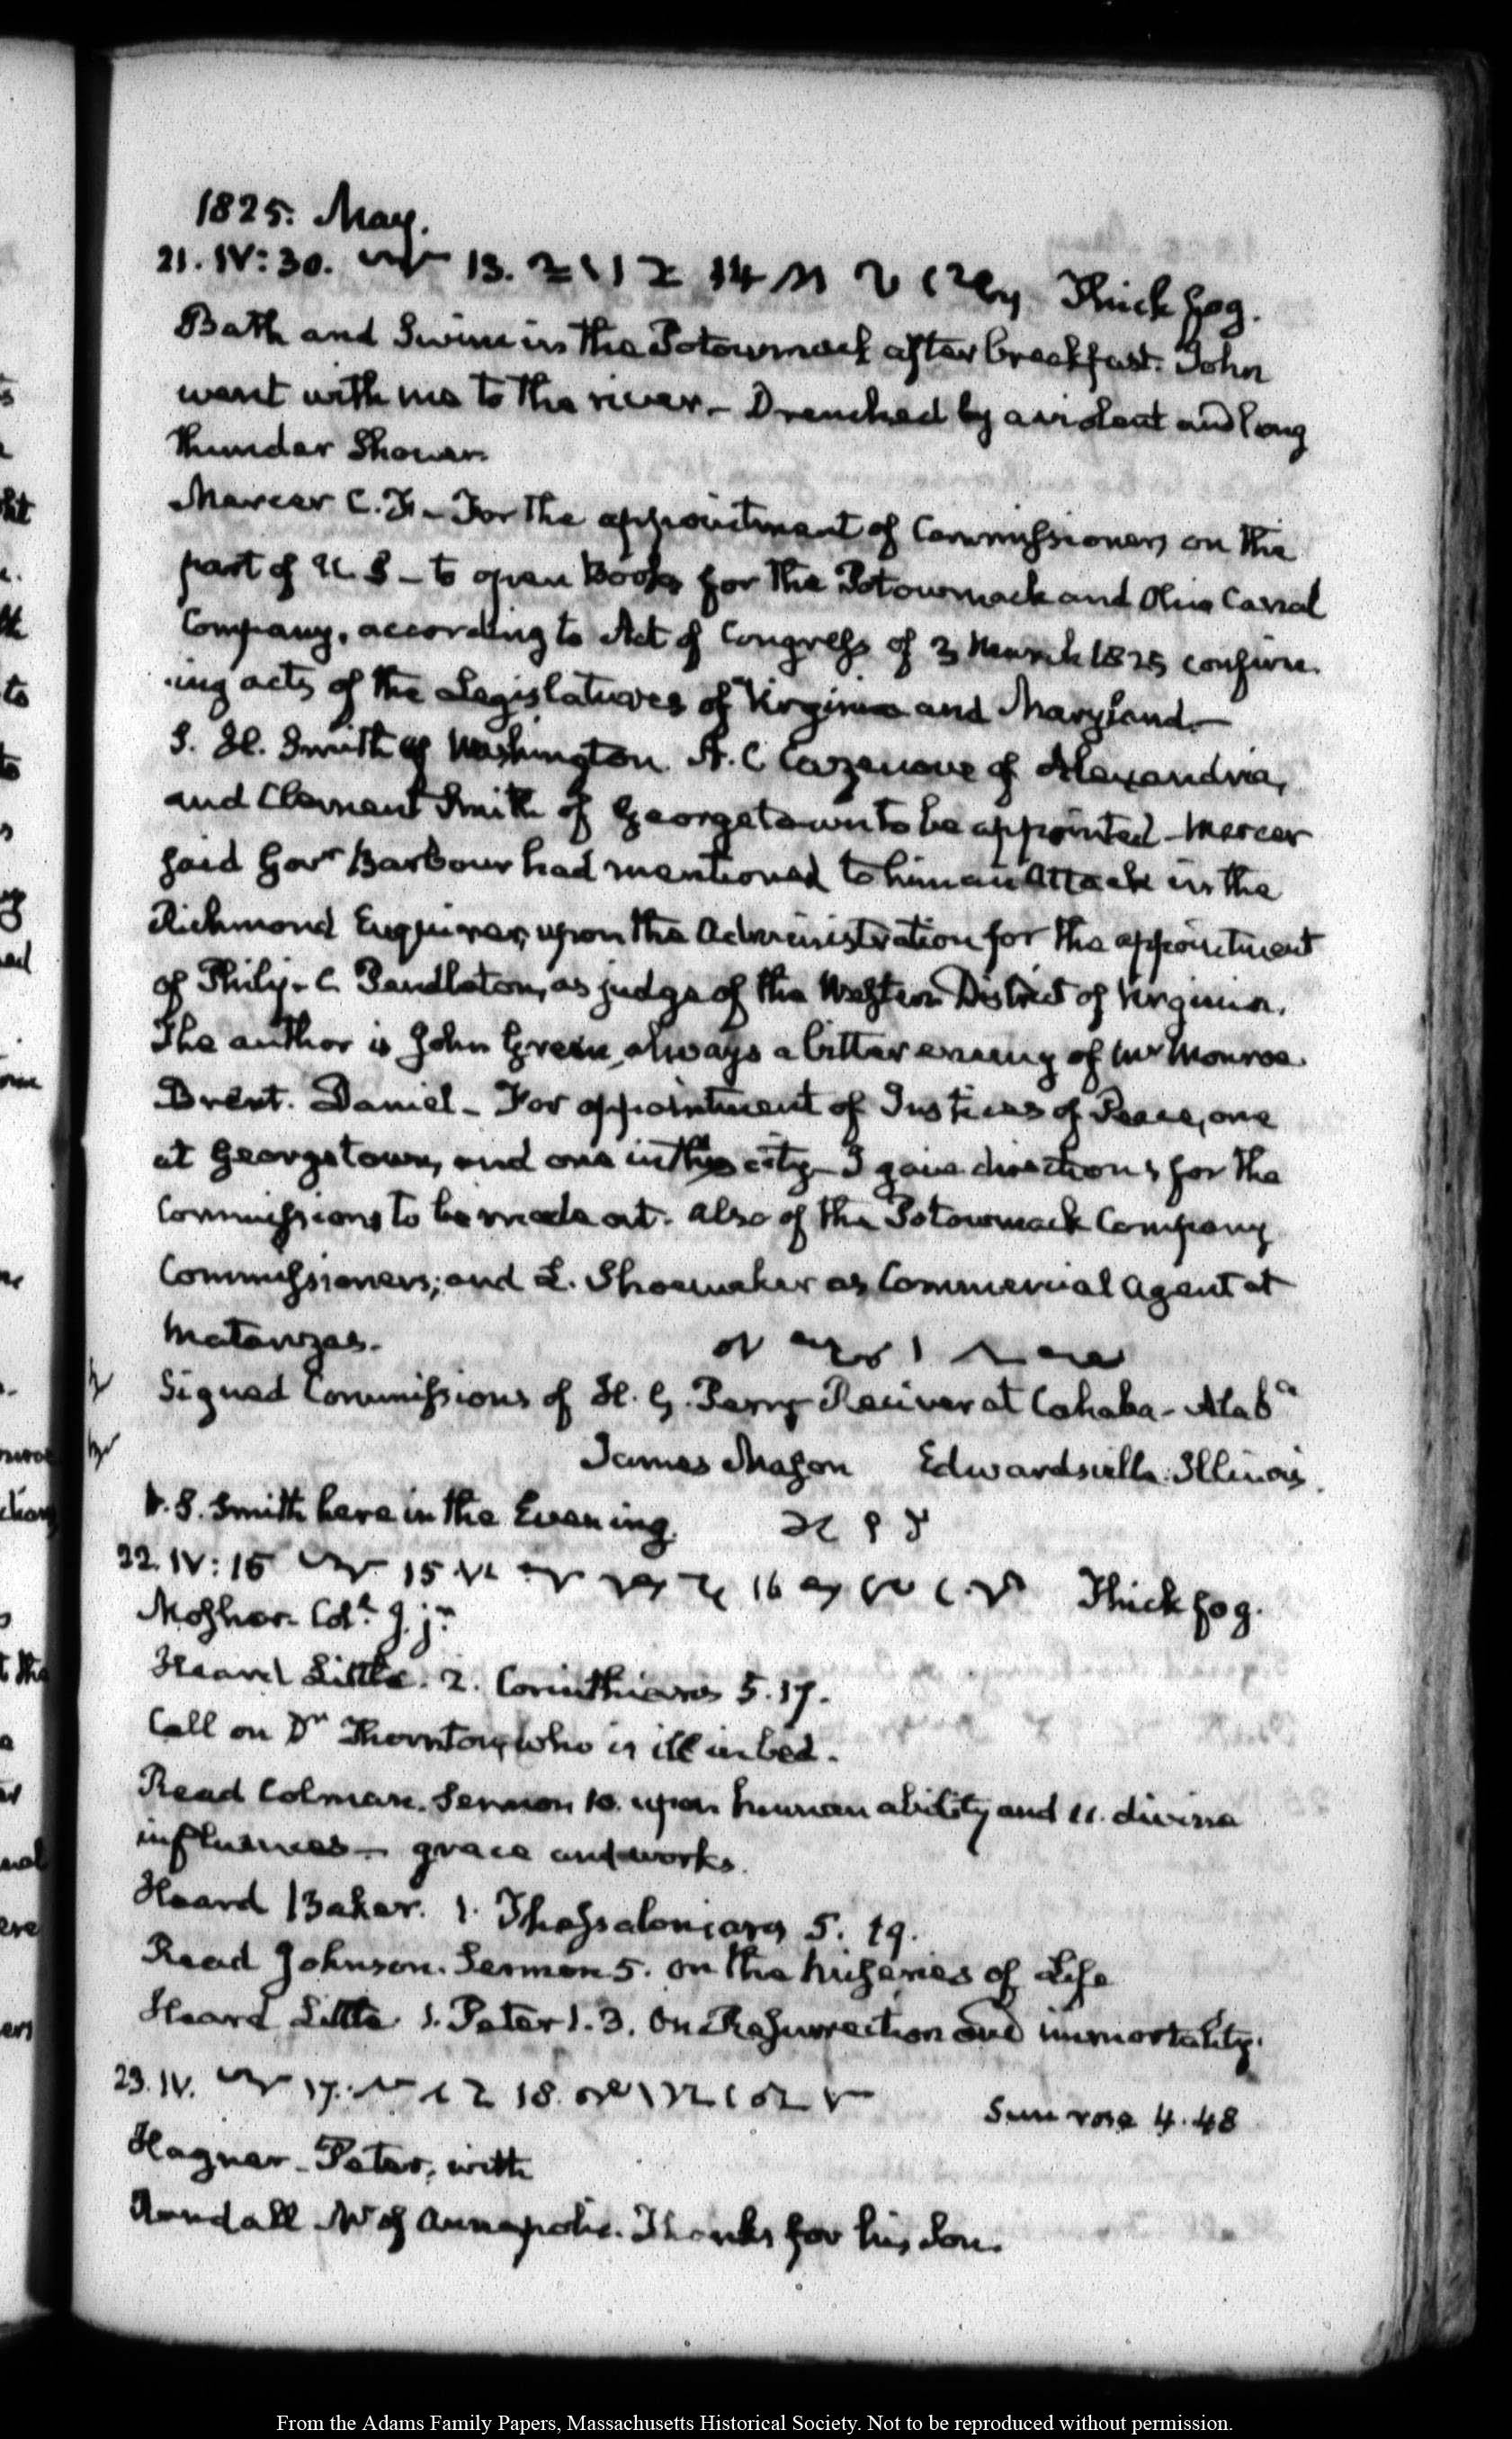 1825. May.
21. IV: 30. 13. 14 Thick fog.
Bath and Swim in the Potowmack after breakfast. John
went with me to the river – Drenched by a violent and long
thunder Shower.
Mercer C. F. – For the appointment of Commissioners on the
part of U. S – to open Books for the Potowmack and Ohio Canal
Company, according to Act of Congress of 3 March 1825 confirm-
ing acts of the Legislatures of Virginia and Maryland. –
S. H. Smith of Washington. A. C Cazenove of Alexandria,
and Clement Smith of Georgetown to be appointed – Mercer
said Govr Barbour had mentioned to him an attack in the
Richmond Enquirer, upon the Administration for the appointment
of Philip. C. Pendleton, as judge of the Western District of Virginia.
The author is John Green, always a bitter enemy of Mr Monroe.
Brent. Daniel – For appointment of Justices of Peace, one
at Georgetown, and one in this city – I gave directions for the
Commissions to be made out. also of the Potowmack Company
Commissioners; and L. Shoemaker as Commercial Agent at
Matanzas.
Signed Commissions of H. G. Perry Receiver at Cahaba – Alaba
James Mason Edwardsville. Illinois.
S. Smith here in the Evening.
22. IV: 15 15 16 Thick fog.
Mosher. Coll J. jr
Heard Little. 2. Corinthians 5. 17.
Call on Dr Thornton, who is ill in bed.
Read Colman. Sermon 10. upon human ability and 11. divine
influences – grace and works.
Heard Baker. 1. Thessalonians 5. 19.
Read Johnson. Sermon 5. on the miseries of Life
Heard Little 1. Peter 1. 3. On Resurrection and immortality.
23. IV. 17. 18. Sun rose 4. 48
Hagner – Peter, with
Randall of Annapolis. Thanks for his Son.
From the Adams Family Papers, Massachusetts Historical Society. Not to be reproduced without permission.